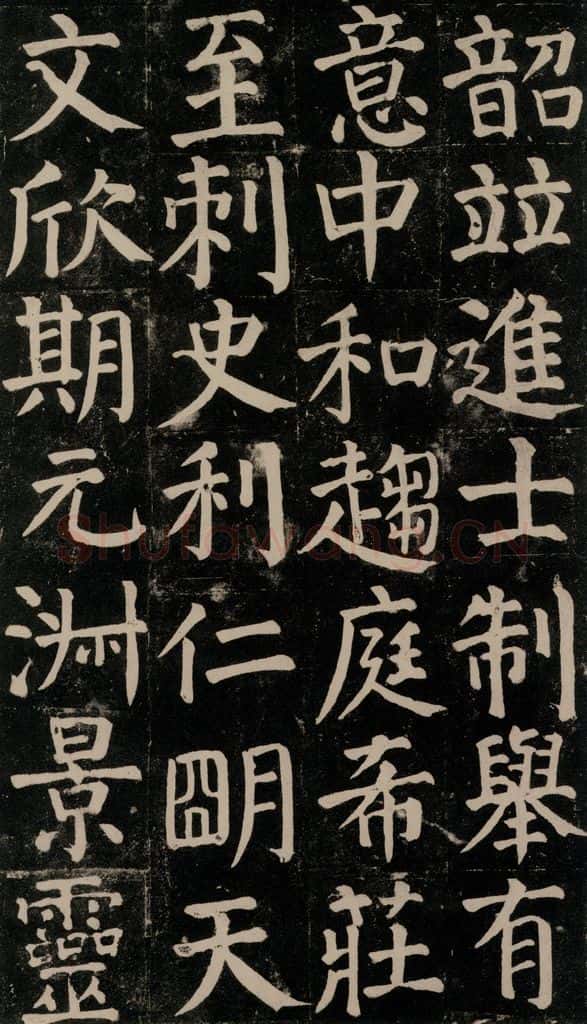 韶竝進士制舉有
意中和趨庭希莊
至刺史利仁明天
文欣期元淵景靈
Shufawang.CN